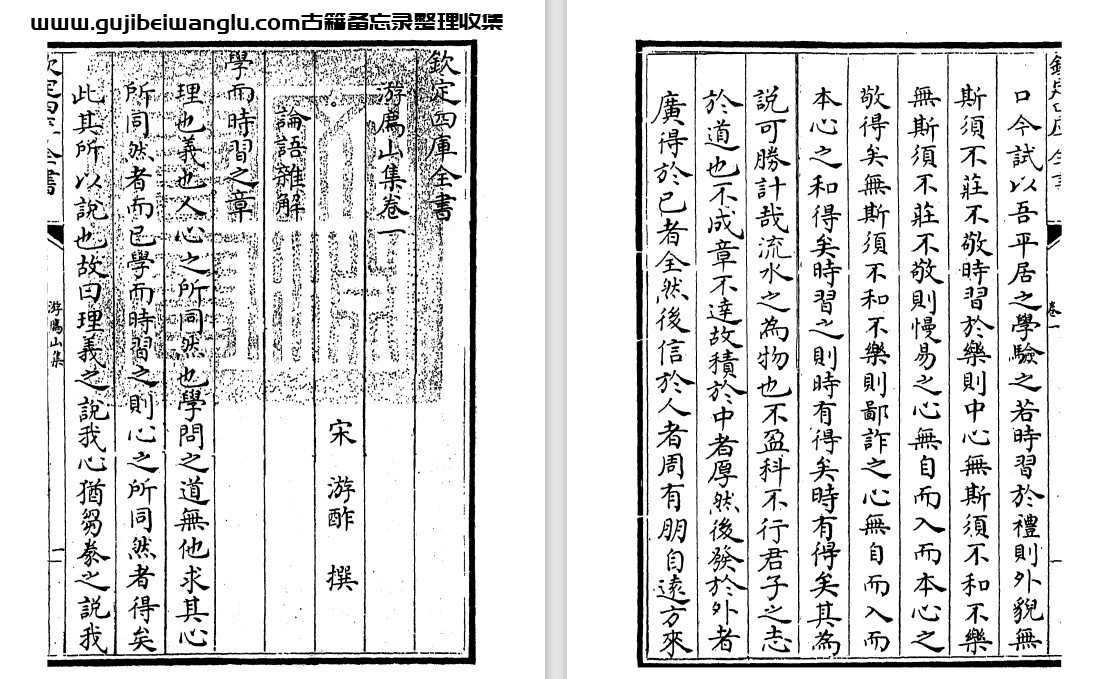 www.gujibeiwanglu.com古籍备忘录整理收集
欽定四庫全書
游廌山集卷一
宋 游酢 撰
論語雜解
學而時習之章
理也義也人心之所同然也學問之道無他求其心
所同然者而已學而時習之則心之所同然者得矣
此其所以說也故曰理義之說我心猶芻豢之說我
欽定四庫全書
游廌山集
一
卷一
口今試以吾平居之學驗之若時習於禮則外貌無
斯須不莊不敬時習於樂則中心無斯須不和不樂
無斯須不莊不敬則慢易之心無自而入而本心之
敬得矣無斯須不和不樂則鄙詐之心無自而入而
本心之和得矣時習之則時有得矣時有得矣其為
說可勝計哉流水之為物也不盈科不行君子之志
於道也不成章不達故積於中者厚然後發於外者
廣得於已者全然後信於人者周有朋自遠方來